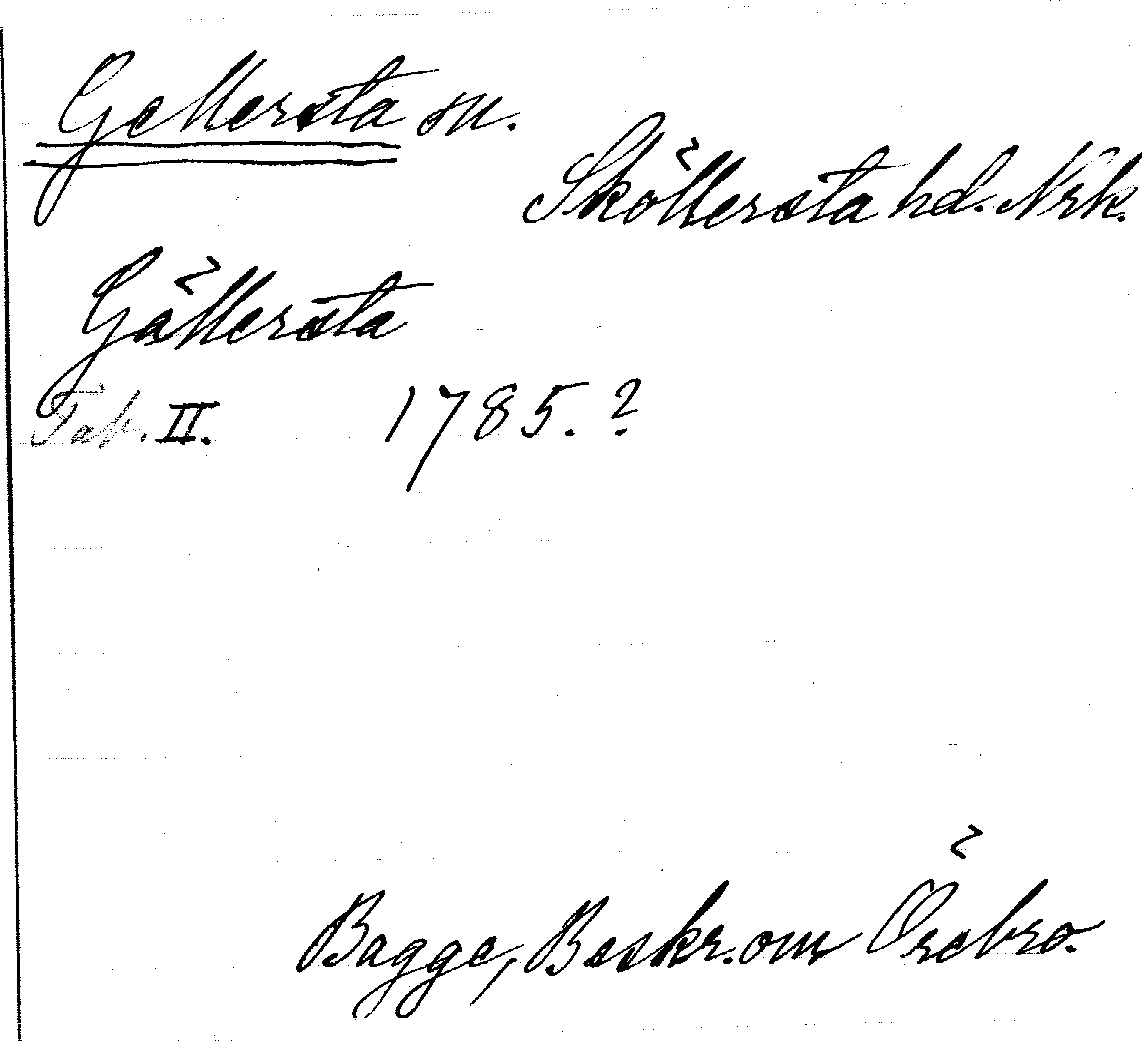 Gellersta sn.
Sköllersta hd. Nrk.
Gällersta
Tab. II. 1785.?
Bagge, Beskr. om Örebro.